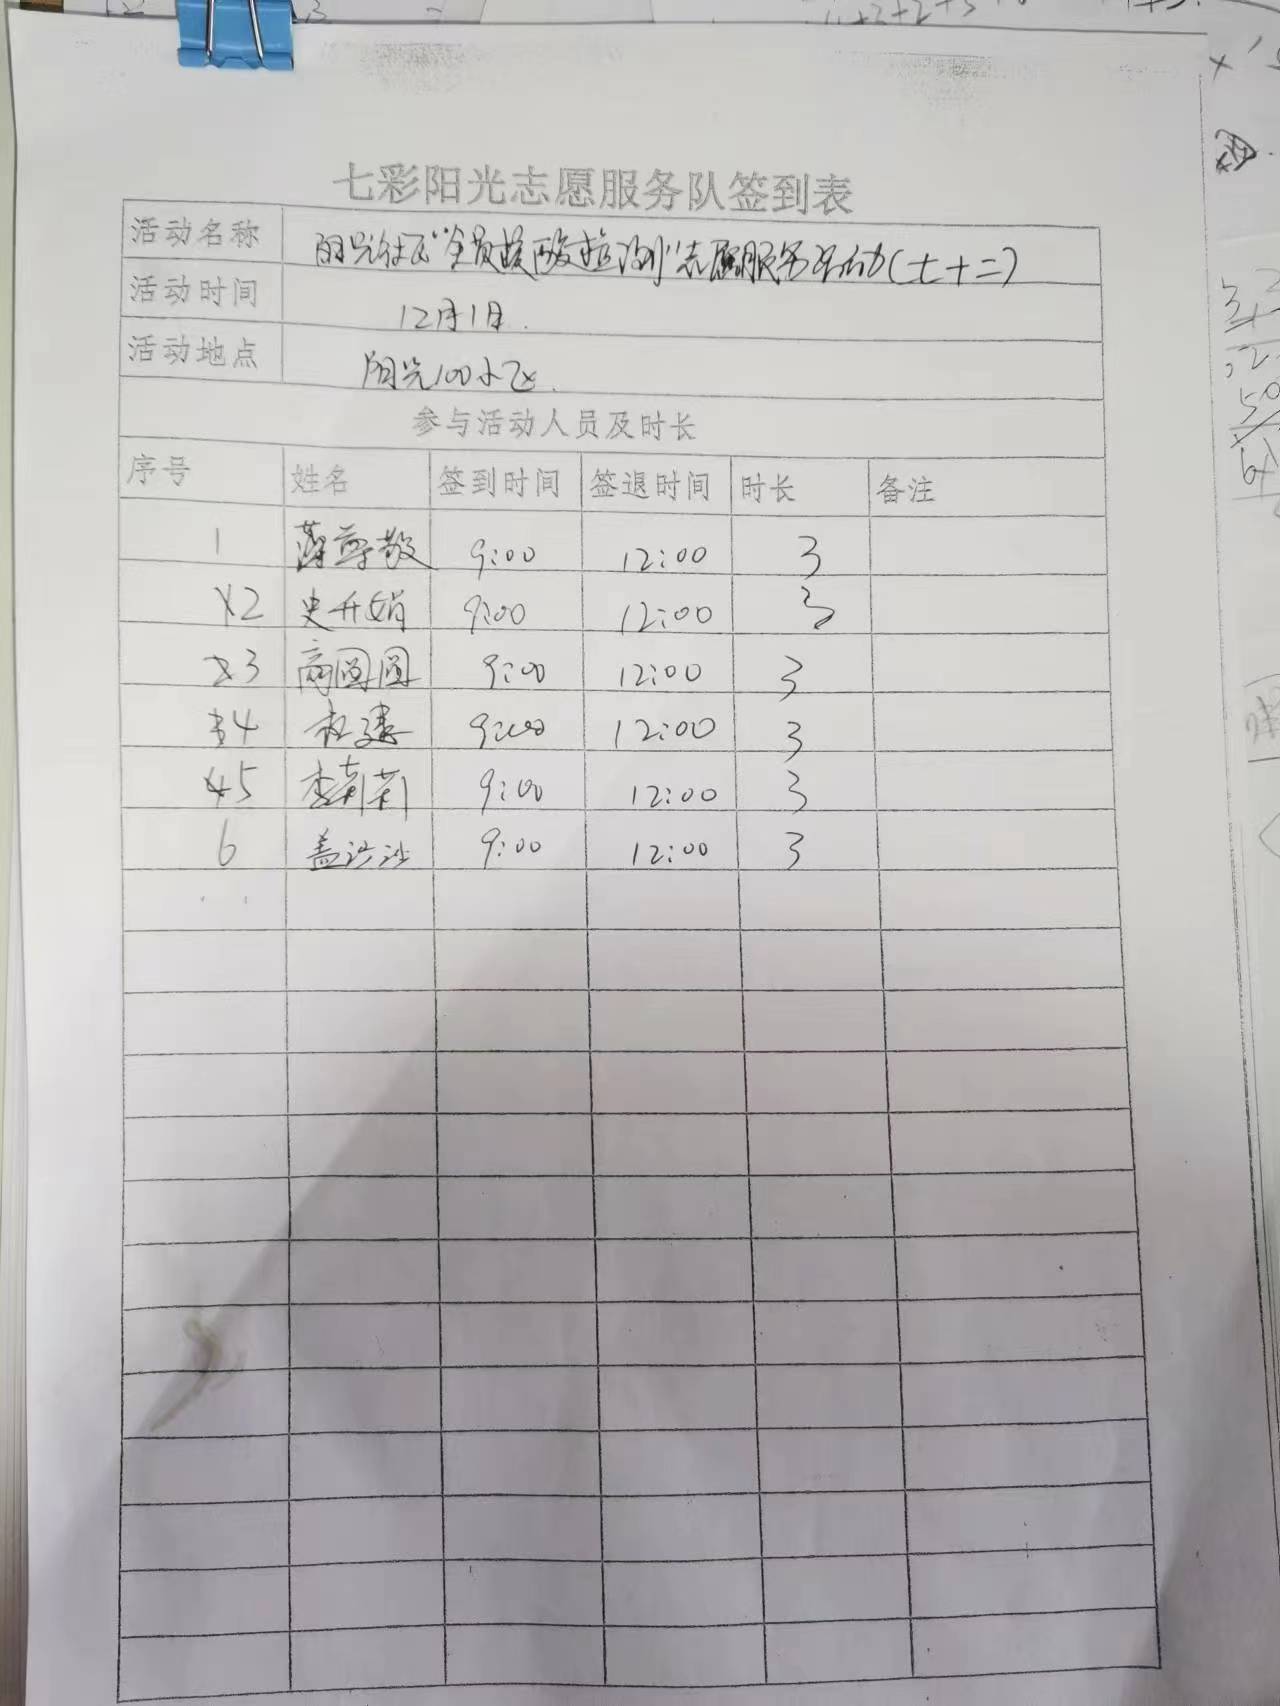 七彩阳光志愿服务队签到表
活动名称 阳光社区“全员核酸检测”志愿服务活动(七十二)
活动时间 12月1日.
活动地点 阳光100小区.
参与活动人员及时长
序号 姓名 签到时间 签退时间 时长 备注
1 薄尊敬 9:00 12:00 3
2 史开娟 9:00 12:00 3
3 商圆圆 9:00 12:00 3
4 9:00 12:00 3
5 李莉莉 9:00 12:00 3
6 盖沙沙 9:00 12:00 3